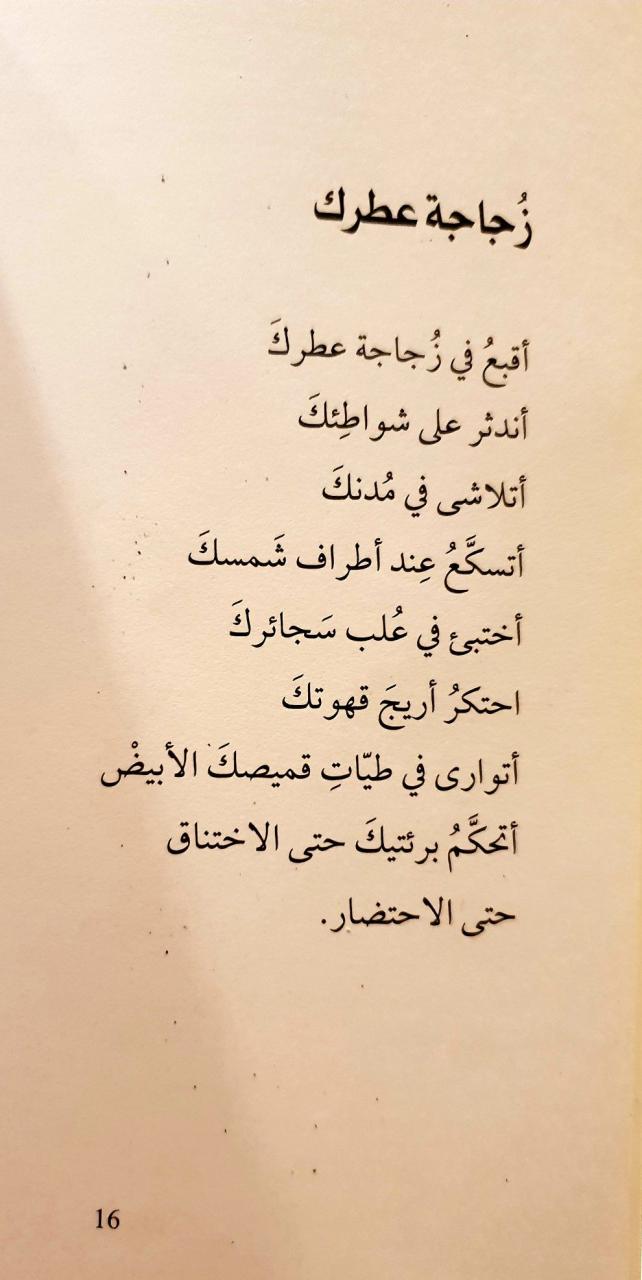 زُجاجة عطرك
أقبعُ في زُجاجة عطركَ
أندثر على شواطِئكَ
أتلاشى في مُدنكَ
أتسكَّعُ عِند أطراف شَمسكَ
أختبئ في عُلب سَجائركَ
احتكرُ أريجَ قهوتكَ
أتوارى في طيّاتِ قميصكَ الأبيضْ
أتحكَّمُ برئتيكَ حتى الاختناق
حتى الاحتضار.
16